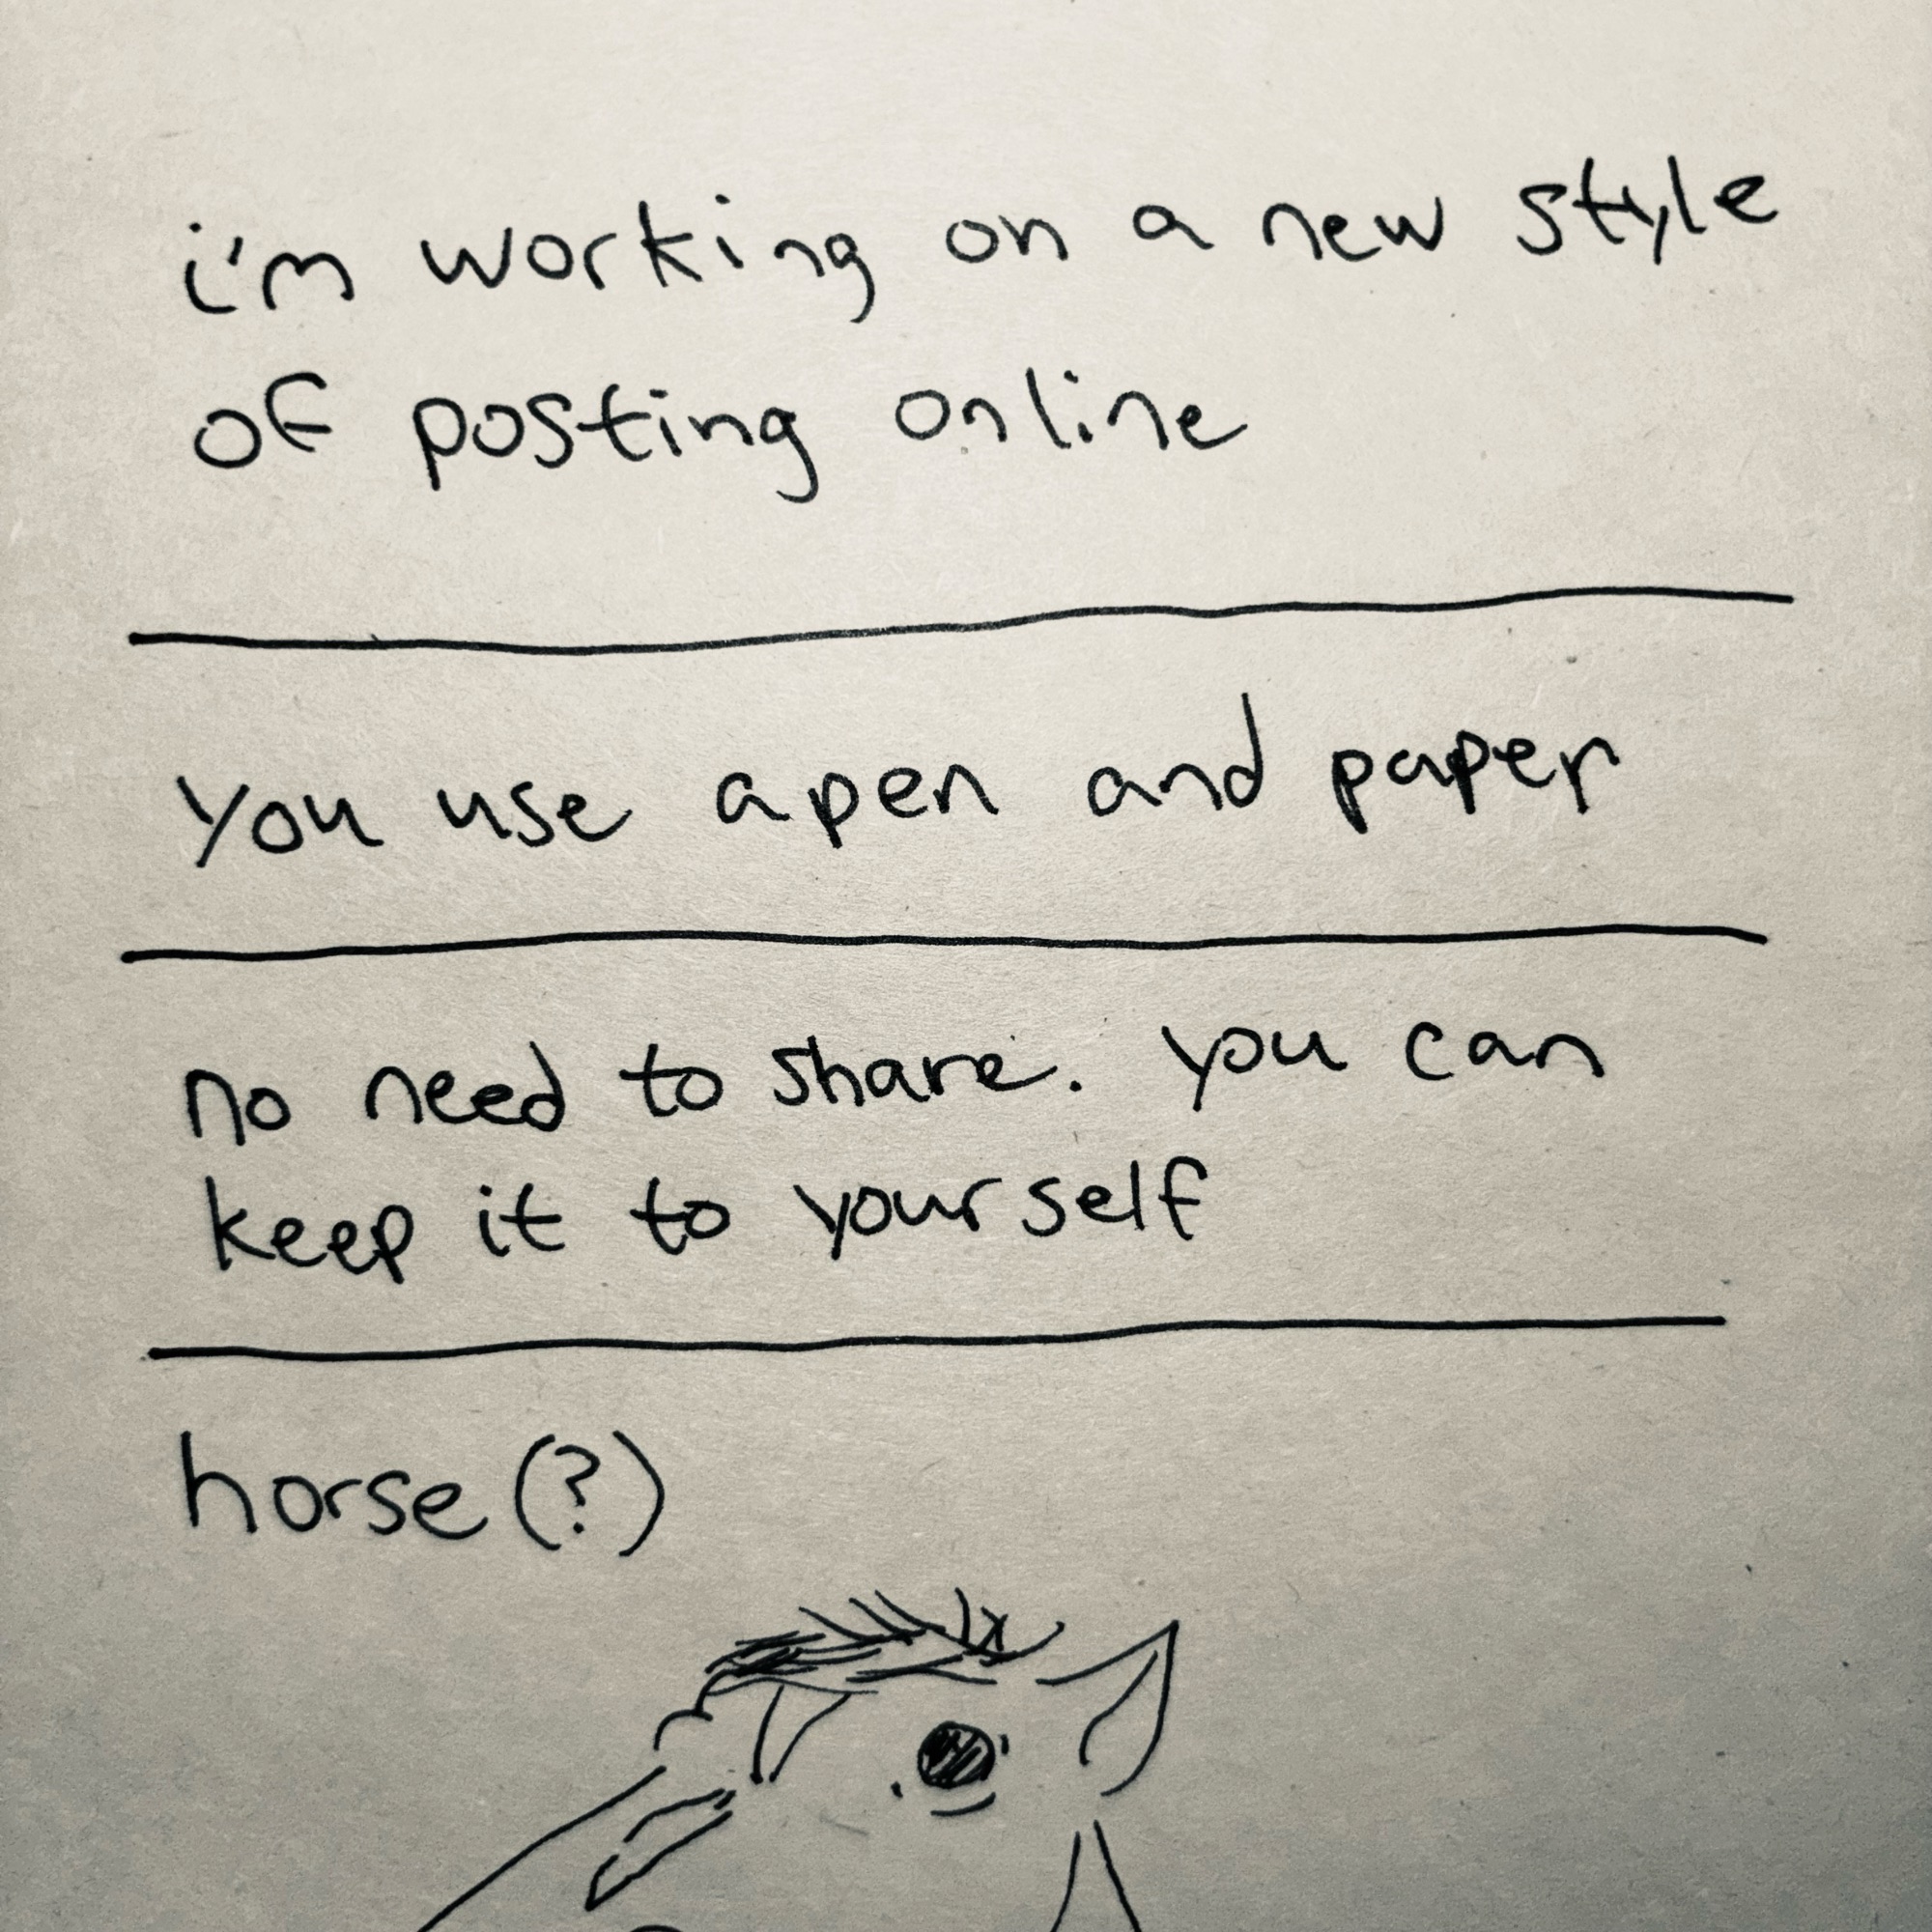 i'm working on a new style
of posting online
You use a pen and paper
no need to share. You can
keep it to yourself
horse (?)